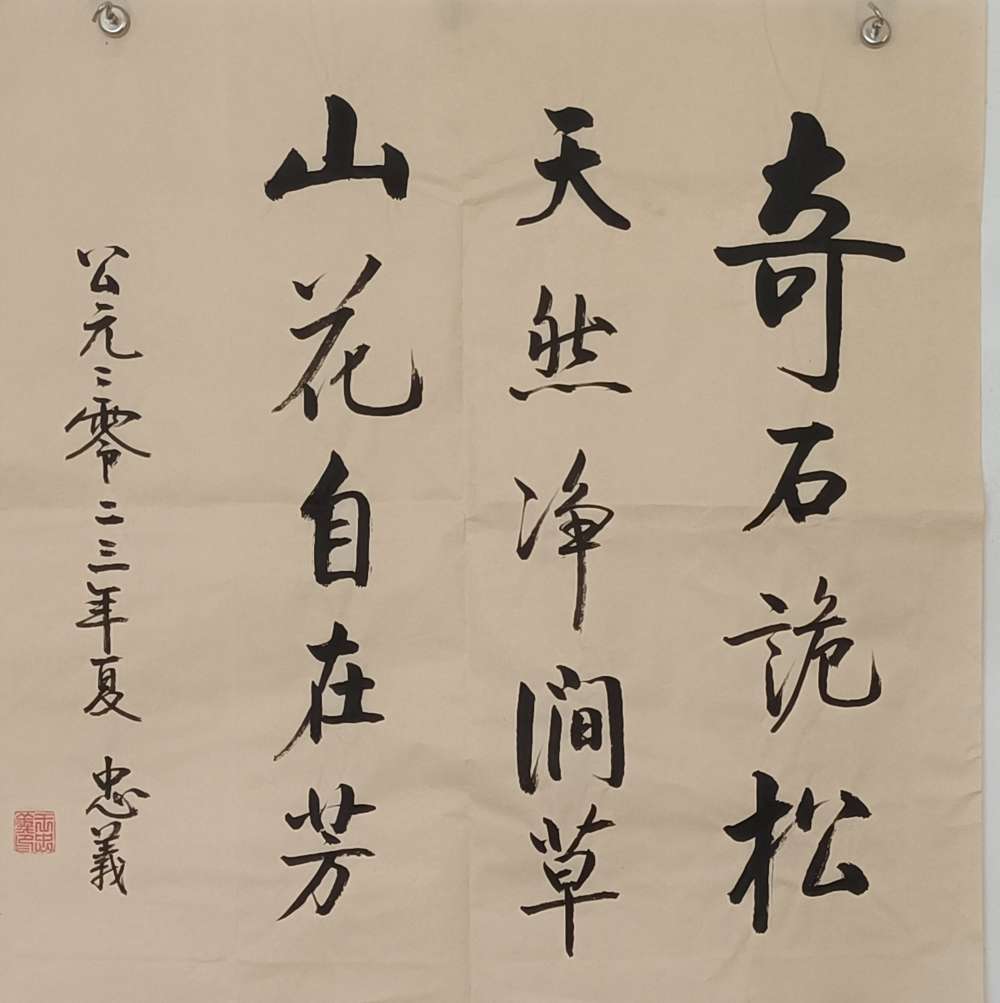 奇石詭松
天然净澗草
山花自在芳
公元二零二三年夏 忠義